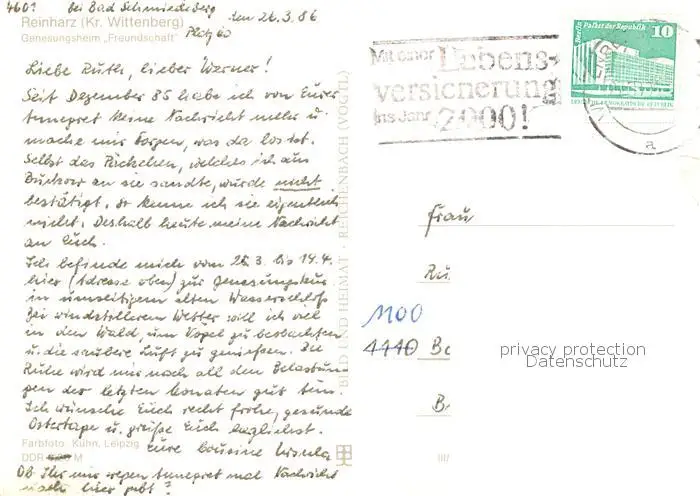 4601 bei Bad Schmiedeberg
den 26.3.86
Reinharz (Kr. Wittenberg)
Genesungsheim „Freundschaft"
Platz 60
Liebe Ruth, lieber Werner!
Seit Dezember 85 habe ich von Eurer
Annegret keine Nachricht mehr u.
mache mir Sorgen, was da los ist.
Selbst das Päckchen, welches ich aus
Buckow an sie sandte, wurde nicht
bestätigt. So kenne ich sie eigentlich
nicht. Deshalb heute meine Nachricht
an Euch.
Ich befinde mich vom 25.3. bis 14.4.
hier (Adresse oben) zur Genesungskur
in umseitigem alten Wasserschloß
Bei windstillerem Wetter will ich viel
in den Wald, um Vögel zu beobachten
u. die saubere Luft zu genießen. Die
Ruhe wird mir nach all den Belastun-
gen der letzten Monaten gut tun.
Ich wünsche Euch recht frohe, gesunde
Ostertage u. grüße Euch herzlichst.
Eure Cousine Ursula
Farbfoto: Kuhn, Leipzig
DDR M
Ob Ihr mir wegen Annegret mal Nachricht
nach hier gebt?
BILD UND HEIMAT · REICHENBACH (VOGTL)
Mit einer Lebens-
versicherung
ins Jahr 2000!
Berlin, Palast der Republik
10
DEUTSCHE DEMOKRATISCHE REPUBLIK
a
Frau
Ru
1100
4440 Be
B
privacy protection
Datenschutz
III/